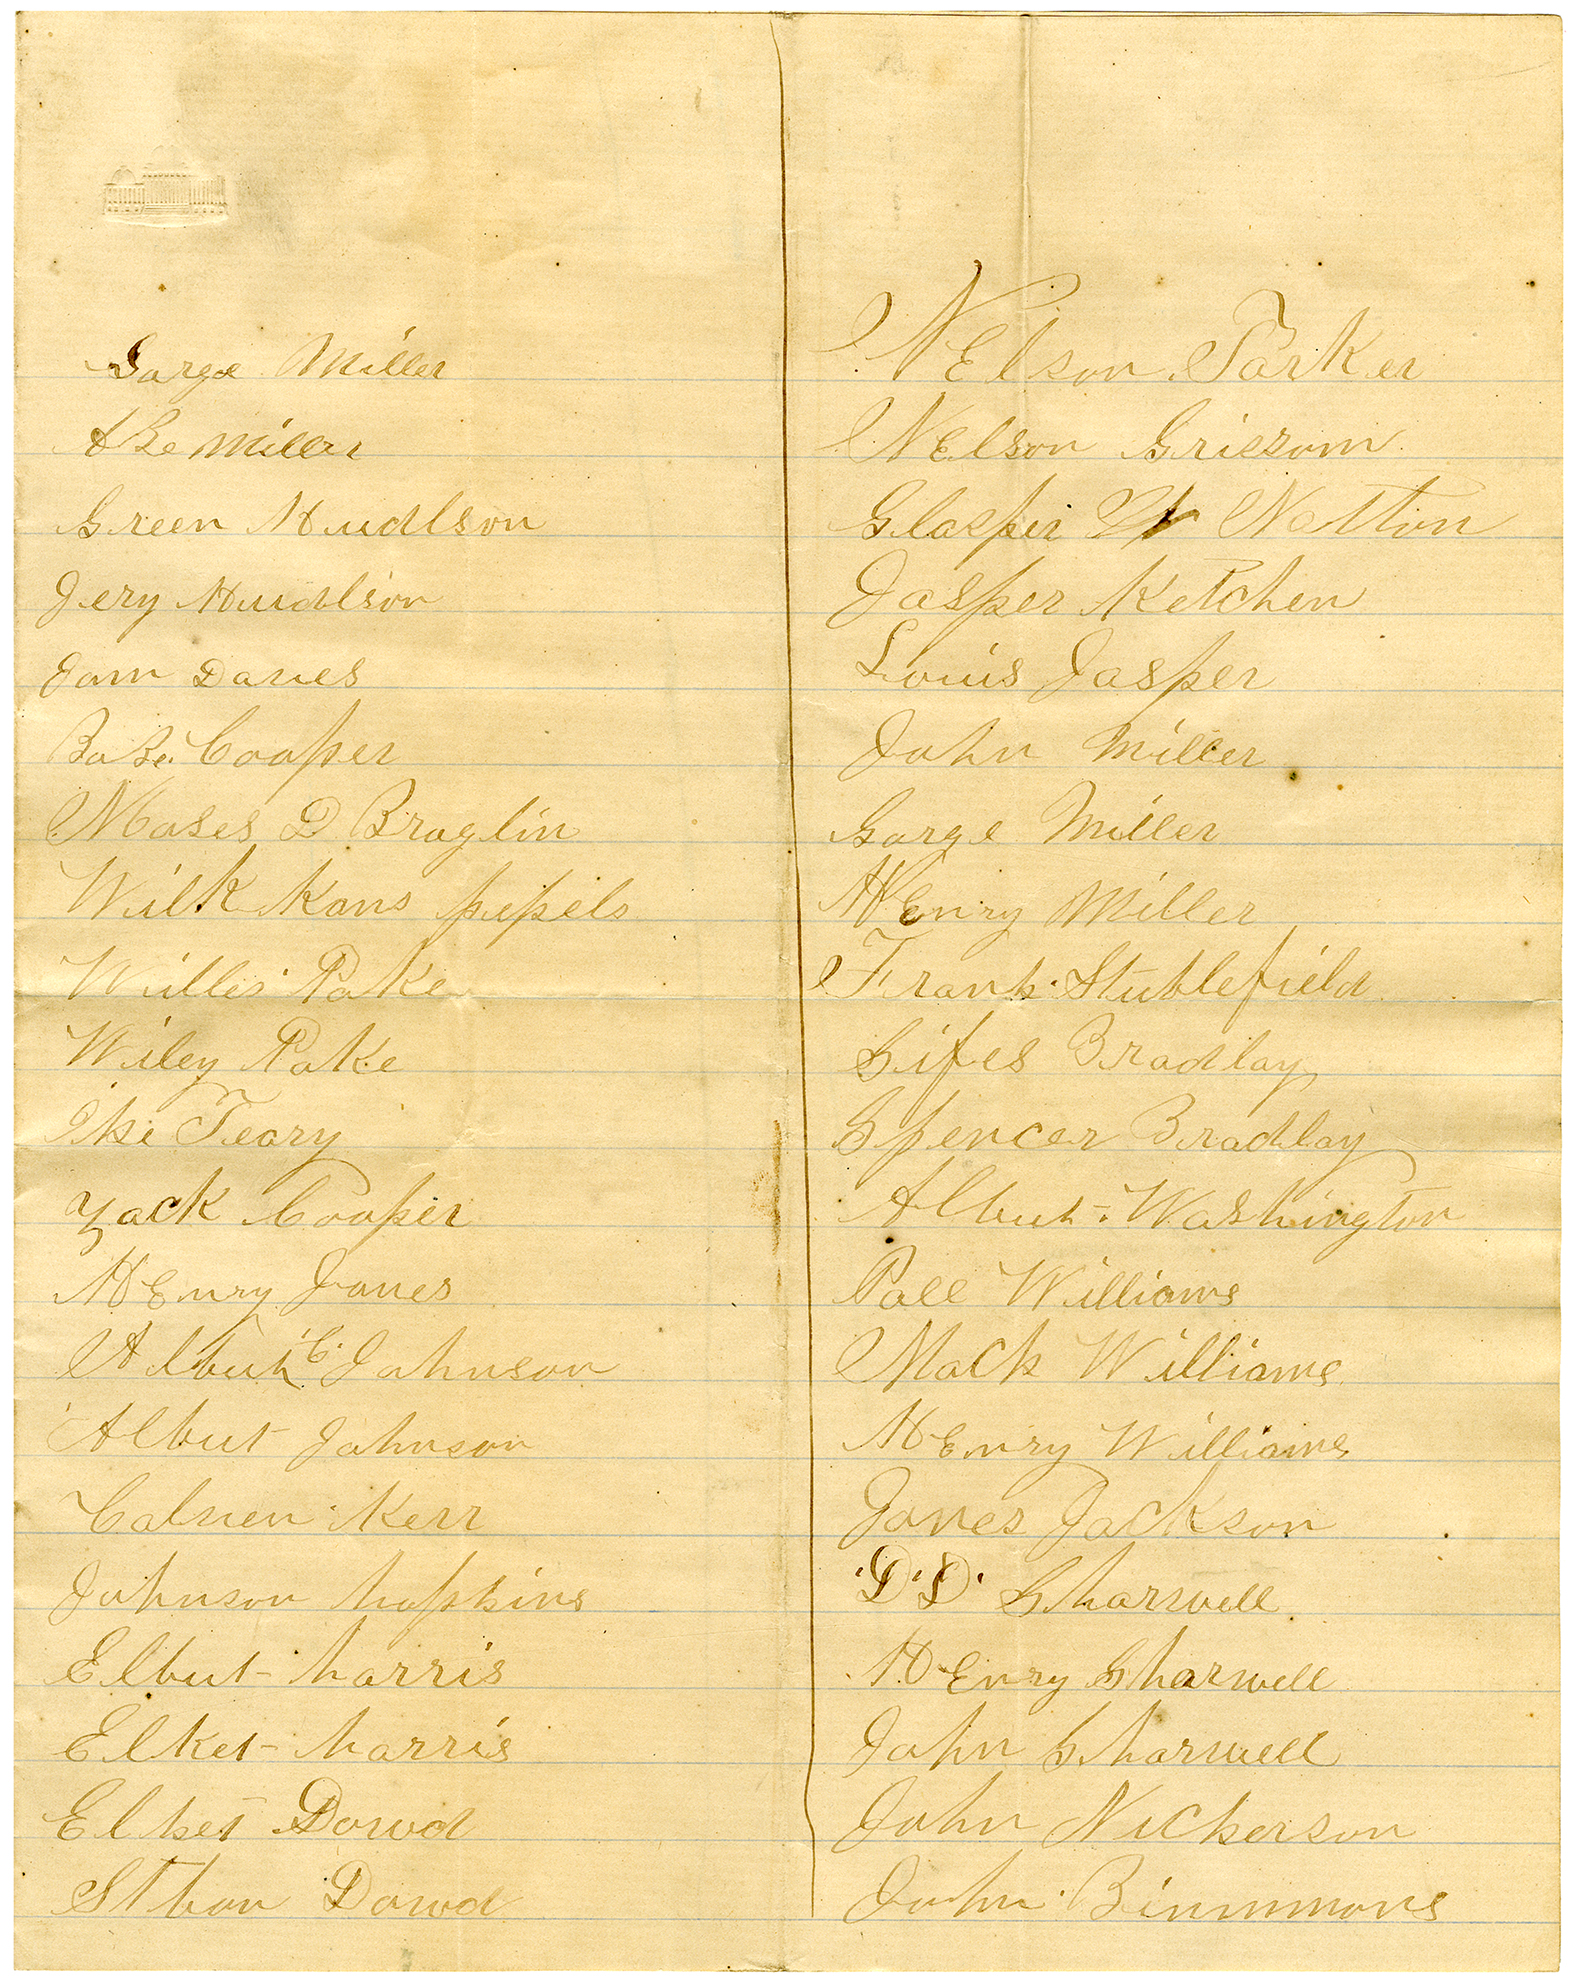 Garge Miller
ABe Miller
Green Hudlson
Jery Hudlson
Jam Danes
BaBe. Cooper
Moses D Braglin
Wilk Kans pepels
Willes Pake
Wiley Pake
Ike Teary
Zack Cooper
HEnry Jones
Albut C. Johnson
Albut Johnson
Calnen Kerr
Johnson hopkins
Elbut harris
Elket harris
Elket Dowd
Sthan Dowd
NElson Parker
NElson Grissom
Glasper W Natton
Jasper Ketchen
Louis Jasper
John Miller
Garge Miller
HEnry Miller
Frank Stublefield
Gifes Bradlay
Spencer Bradlay
Albut Washington
Pall Williams
Mack Williams
HEnry Williams
Janes Jackson
D. D. Sharwell
HEnry Sharwell
John Sharwell
John Nickerson
John Binmmons